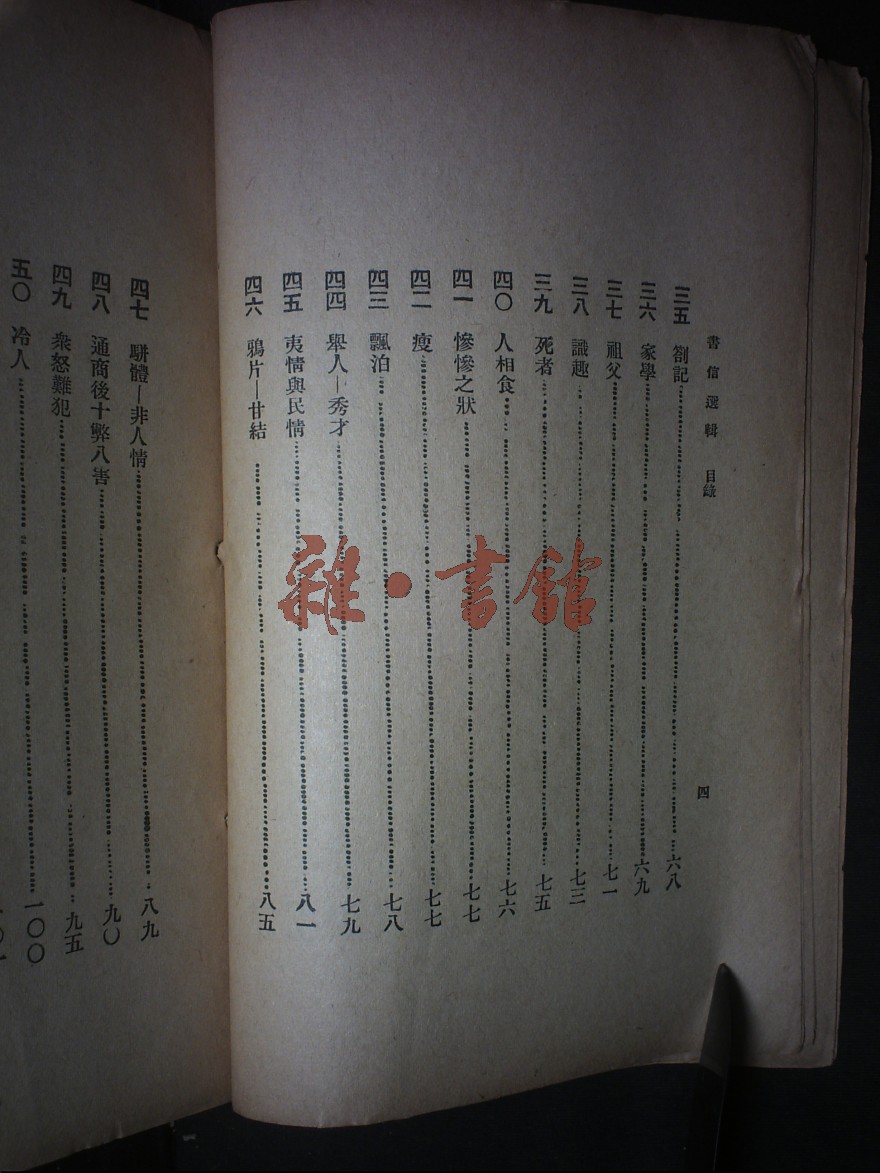 書信選輯 目錄 四
三五 劄記 六八
三六 家學 六九
三七 祖父 七一
三八 識趣 七三
三九 死者 七五
四〇 人相食 七六
四一 慘慘之狀 七七
四二 瘦 七七
四三 飄泊 七八
四四 舉人—秀才 七九
四五 夷情與民情 八一
四六 鴉片—甘結 八五
四七 駢體—非人情 八九
四八 通商後十弊八害 九〇
四九 衆怒難犯 九五
五〇 冷人 一〇〇
雜·書館